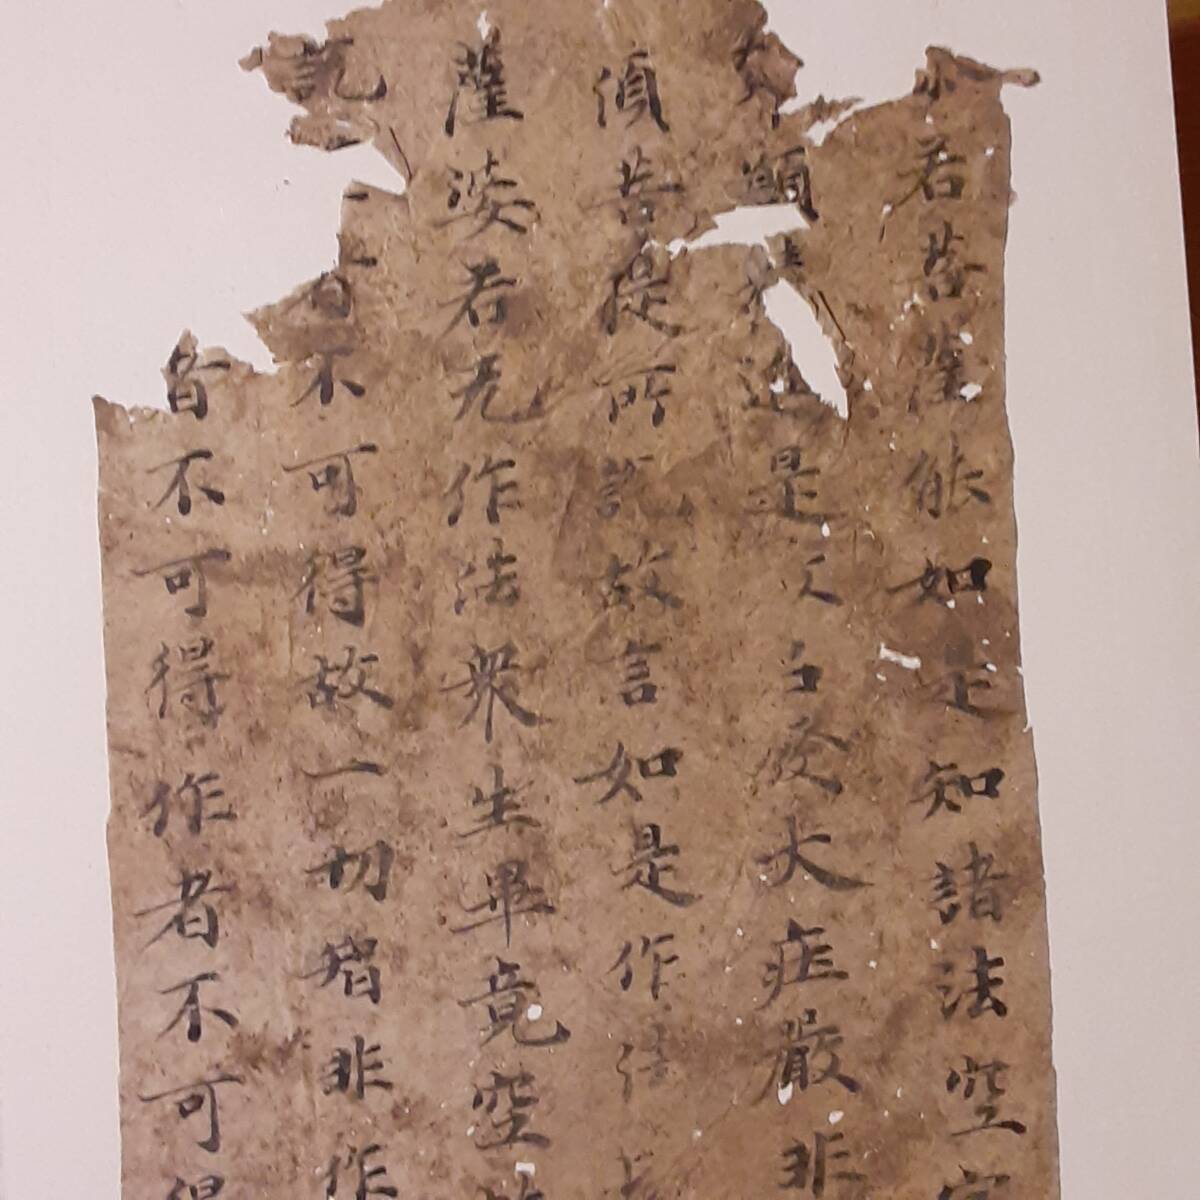 若菩薩能如是知諸法空
願精進是又名發大莊嚴非
須菩提所說故言如是作法
薩婆若无作法衆生畢竟空
說不可得故一切智非作
者不可得作者不可得